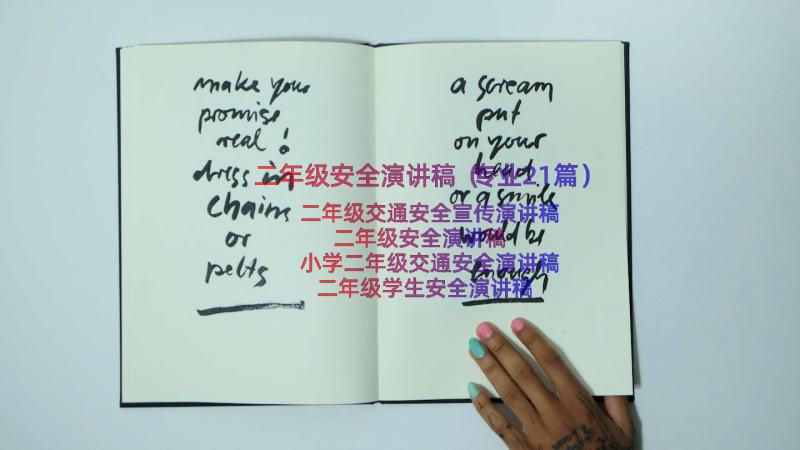 make your
promise
real!
dress in
chains
or
pelts
a scream
put
on your
head
or a smile
would be
enough
二年级安全演讲稿（专业21篇）
二年级交通安全宣传演讲稿
二年级安全演讲稿
小学二年级交通安全演讲稿
二年级学生安全演讲稿